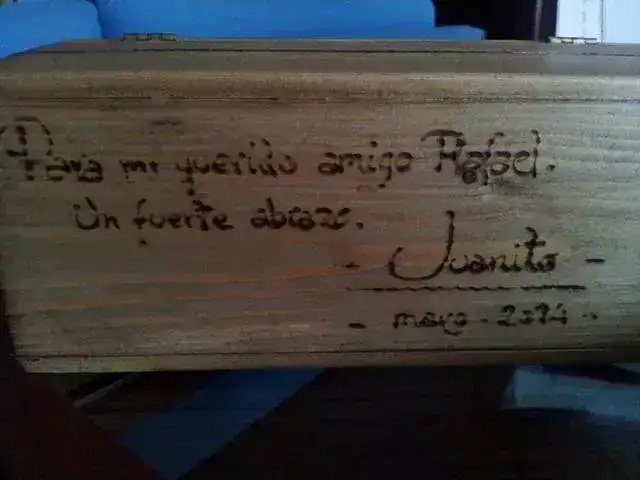 Para mi querido amigo Rafael.
Un fuerte abrazo.
- Juanito -
- mayo - 2014 -